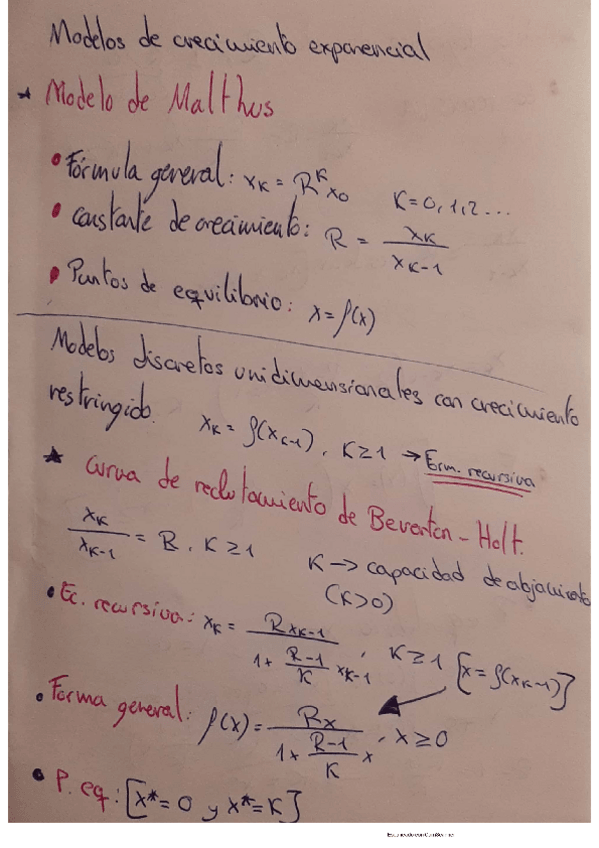 Modelos de crecimiento exponencial
* Modelo de Malthus
• Fórmula general: x_K = R^K x_0 K = 0, 1, 2 ...
• Constante de crecimiento: R = x_K / x_{K-1}
• Puntos de equilibrio: x = f(x)
Modelos discretos unidimensionales con crecimiento
restringido. x_K = f(x_{K-1}), K ≥ 1 → Erm. recursiva
* Curva de reclutamiento de Beverton - Holt.
x_K / x_{K-1} = R, K ≥ 1 K → capacidad de alojamiento
(K > 0)
• Ec. recursiva: x_K = R x_{K-1} / (1 + (R-1)/K x_{K-1}), K ≥ 1 [x = f(x_{K-1})]
• Forma general: f(x) = Rx / (1 + (R-1)/K x), x ≥ 0
• P. eq: [x* = 0 y x* = K]